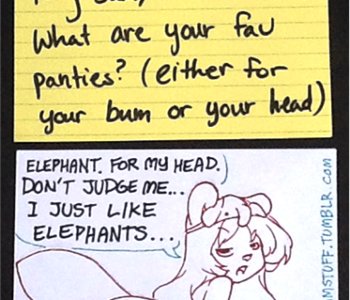 What are your fav
panties? (either for
your bum or your head)
ELEPHANT. FOR MY HEAD.
DON'T JUDGE ME...
I JUST LIKE
ELEPHANTS...
MSTUFF.TUMBLR.COM